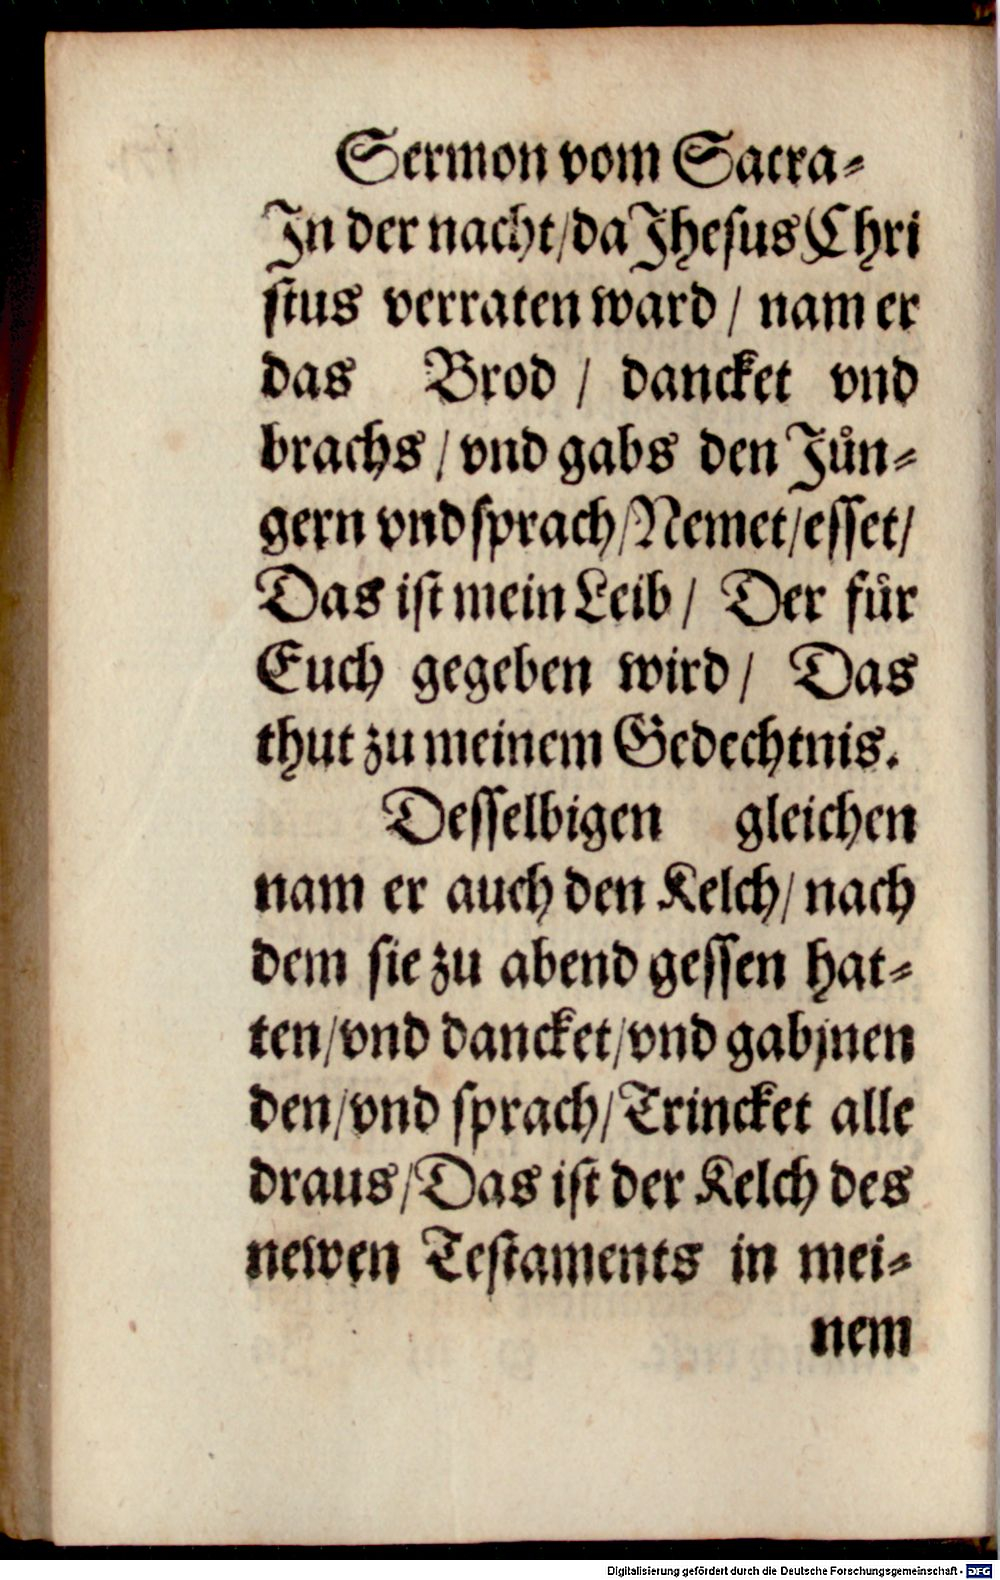 Sermon vom Sacra⸗
In der nacht/da Jhesus Chri
stus verraten ward / nam er
das Brod / dancket vnd
brachs / vnd gabs den Juͤn⸗
gern vnd sprach/Nemet/esset/
Das ist mein Leib / Der fuͤr
Euch gegeben wird / Das
thut zu meinem Gedechtnis.
Desselbigen gleichen
nam er auch den Kelch/ nach
dem sie zu abend gessen hat⸗
ten/vnd dancket/vnd gab jnen
den/vnd sprach/Trincket alle
draus/Das ist der Kelch des
newen Testaments in mei⸗
nem
Digitalisierung gefördert durch die Deutsche Forschungsgemeinschaft - DFG